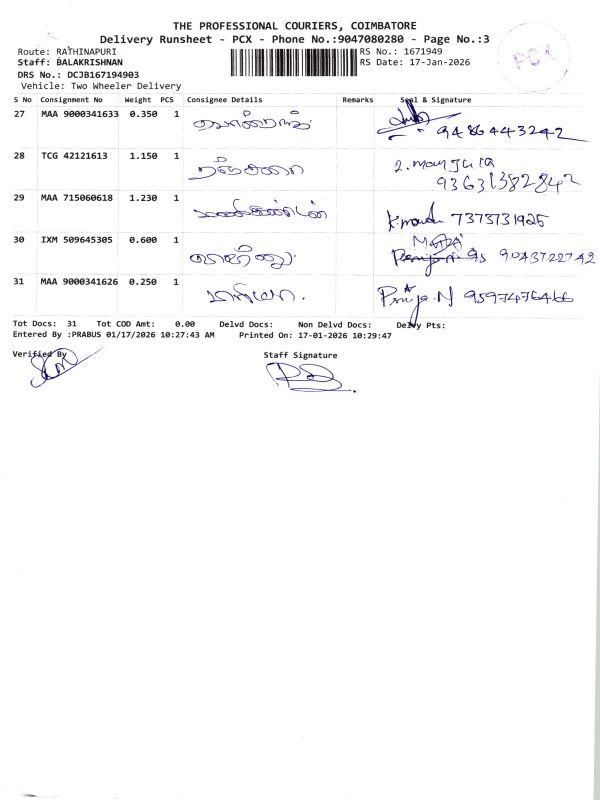 THE PROFESSIONAL COURIERS, COIMBATORE
Delivery Runsheet - PCX - Phone No.:9047080280 - Page No.:3
Route: RATHINAPURI
RS No.: 1671949
PCX
Staff: BALAKRISHNAN
RS Date: 17-Jan-2026
DRS No.: DCJB167194903
Vehicle: Two Wheeler Delivery
S No Consignment No Weight PCS Consignee Details Remarks Seal & Signature
27 MAA 9000341633 0.350 1 9486443242
28 TCG 42121613 1.150 1
29 MAA 715060618 1.230 1 7373731925
30 IXM 509645305 0.600 1 9043722742
31 MAA 9000341626 0.250 1 Priya.N 9597476466
Tot Docs: 31 Tot COD Amt: 0.00 Delvd Docs: Non Delvd Docs: Delvy Pts:
Entered By :PRABUS 01/17/2026 10:27:43 AM Printed On: 17-01-2026 10:29:47
Verified By Staff Signature